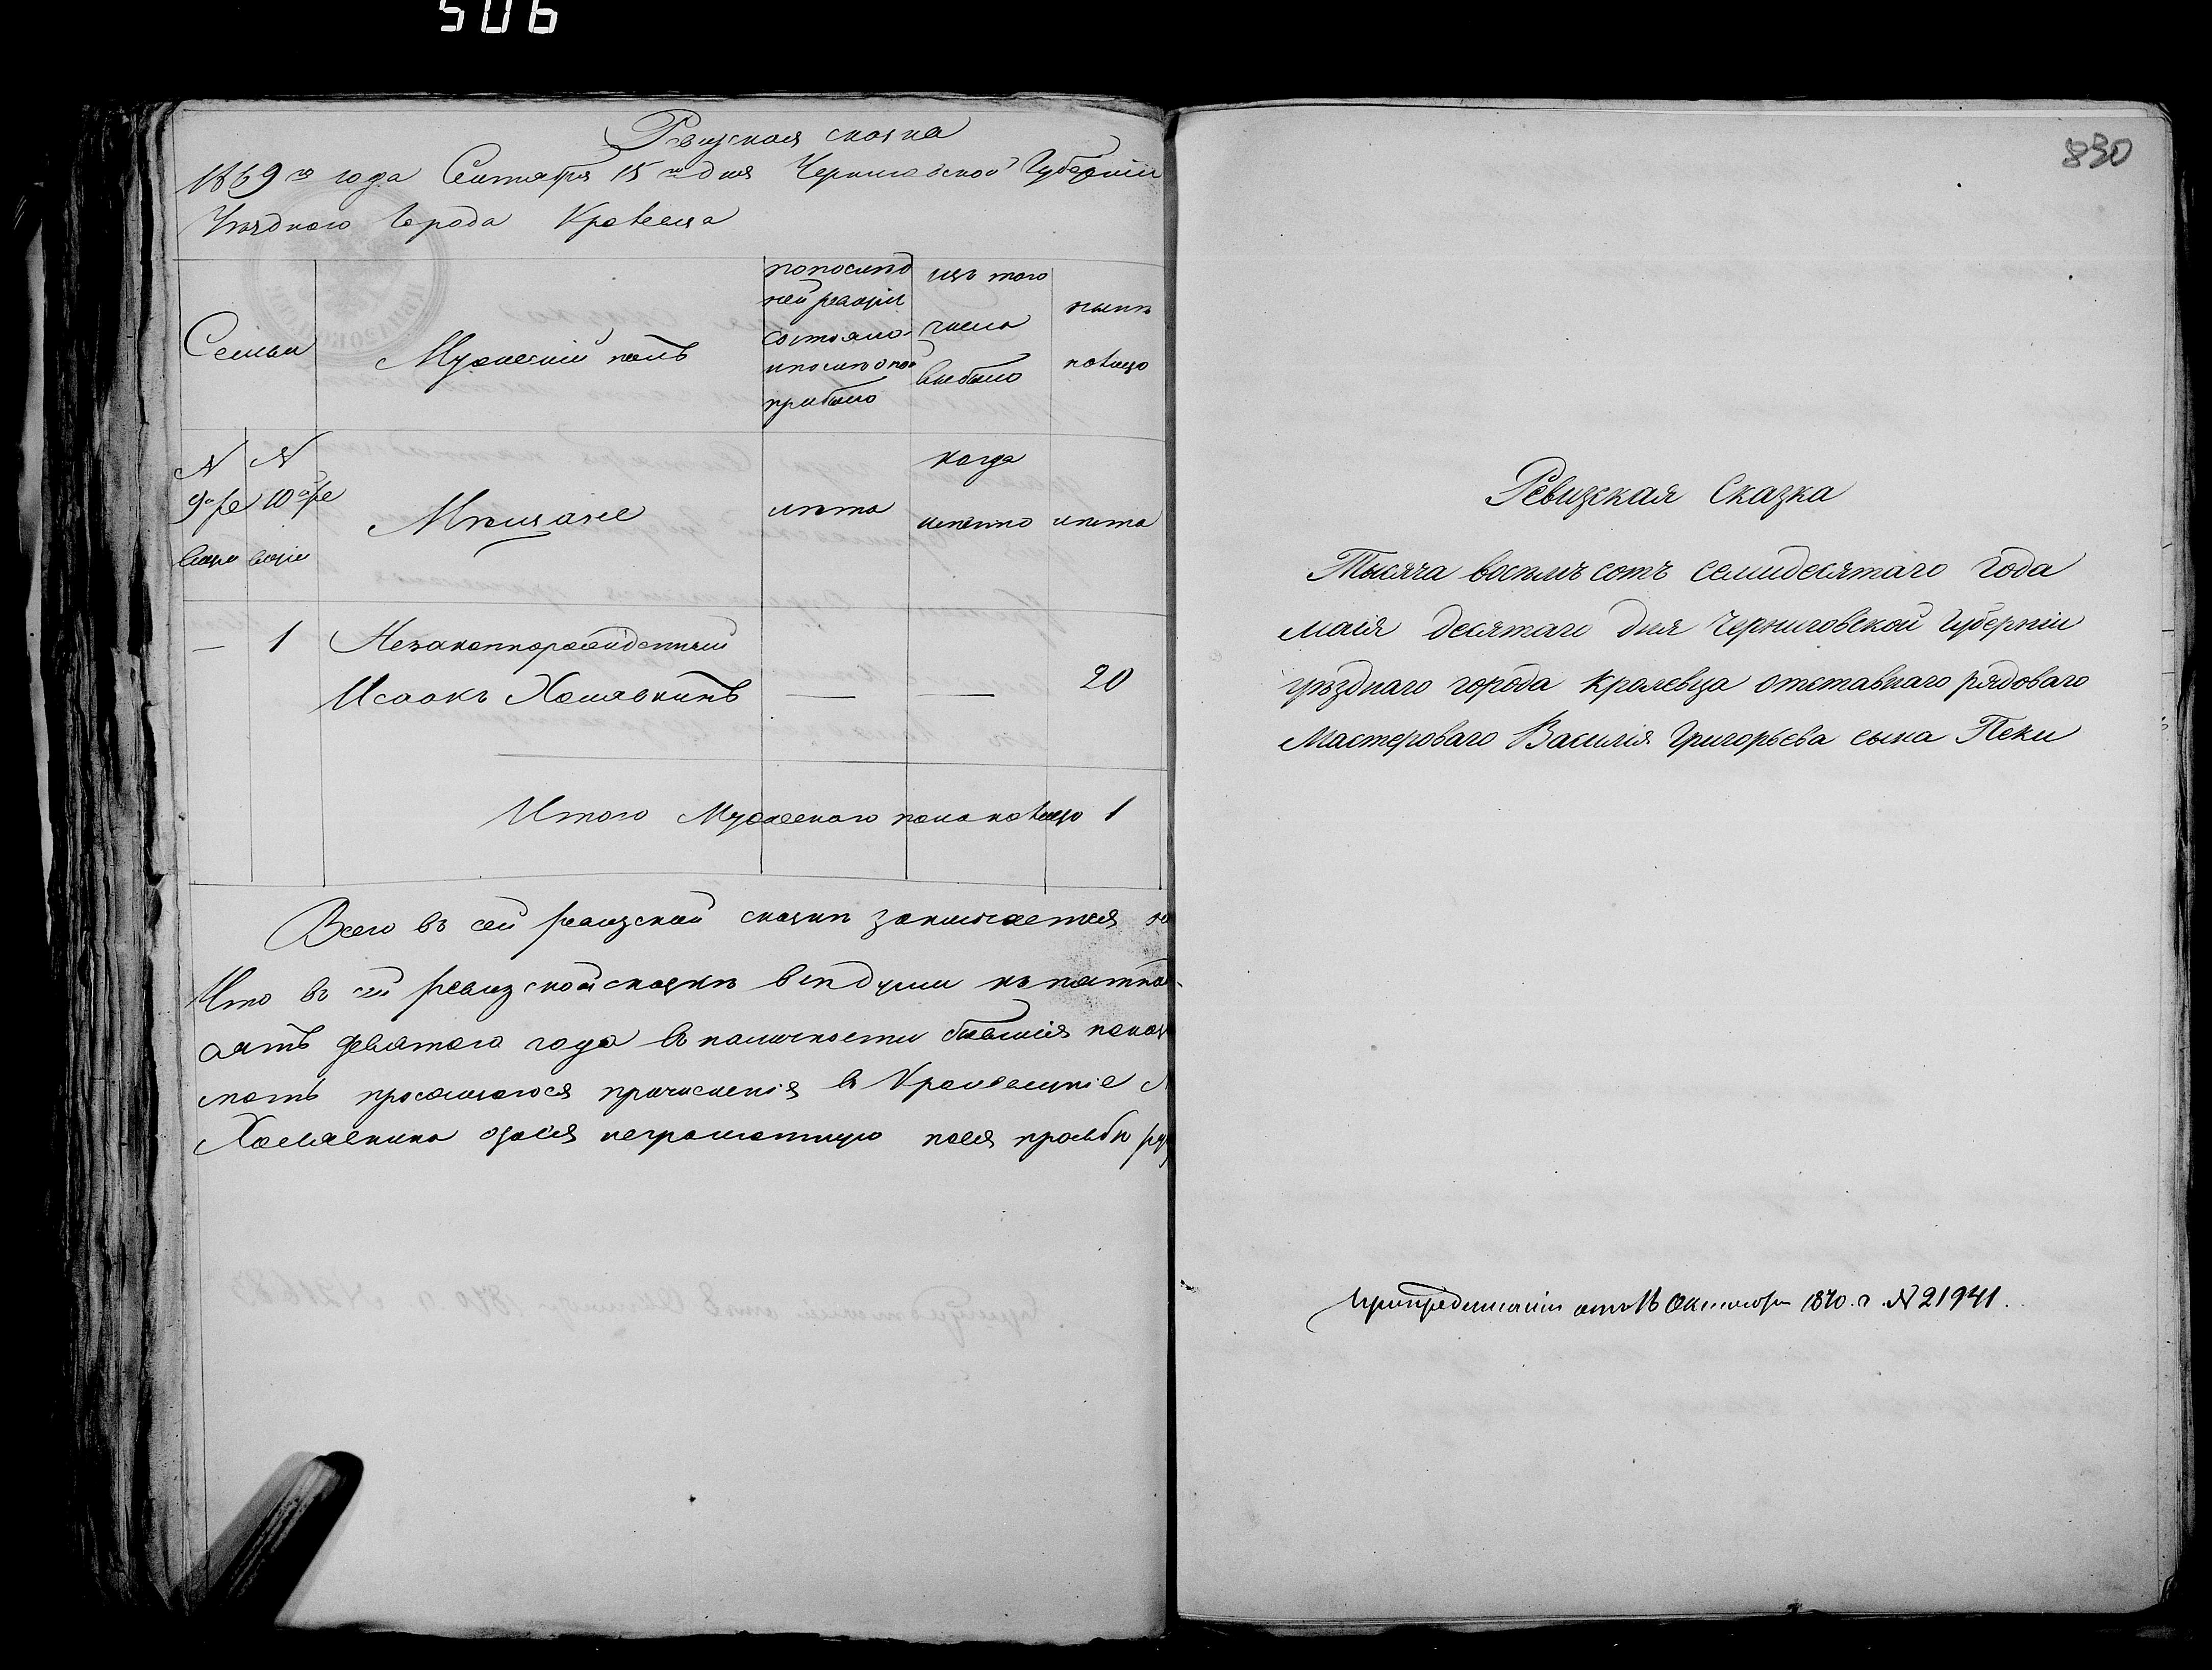 506
Ревизская сказка
1869го года Сентября 15го дня Черниговской Губернии
Уезднаго Города Кролевца
Семьи
Мужеский полъ
по послед
ней ревизии
состояло
и после оной
прибыло
изъ того
числа
выбыло
ныне
на лицо
N 9й ре
визии
N 10й ре
визии
Мещане
лета
когда
именно
лета
— 1 Незаконнорожденный
Исаакъ Хомявкинъ — — 20
Итого Мужескаго пола на лицо 1
Всего въ сей ревизской сказке заключается
Что въ сей ревизской сказке все души къ
девятаго года въ наличности бывшия
просящагося причисления въ Кролевецкие
неграмотную по ея прозьбе
830
Ревизская Сказка
Тысяча восемь сотъ семидесятаго года
маія десятаго дня Черниговской Губерніи
уѣзднаго города Кролевца отставнаго рядоваго
Мастероваго Василія Григорьева сына Пеки
отъ Октября 1870 г. N 21941.